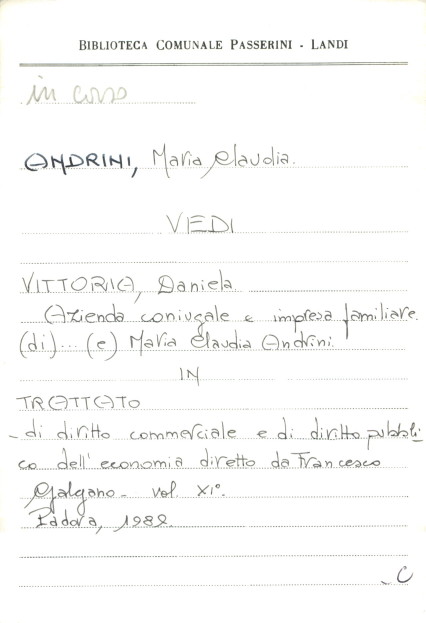 BIBLIOTECA COMUNALE PASSERINI - LANDI
in corso
ANDRINI, Maria Claudia.
VEDI
VITTORIA, Daniela
Azienda coniugale e impresa familiare
(di)... (e) Maria Claudia Andrini.
IN
TRATTATO
- di diritto commerciale e di diritto pubbli
co dell'economia diretto da Francesco
Galgano - vol. XI°.
Padova, 1989.
C